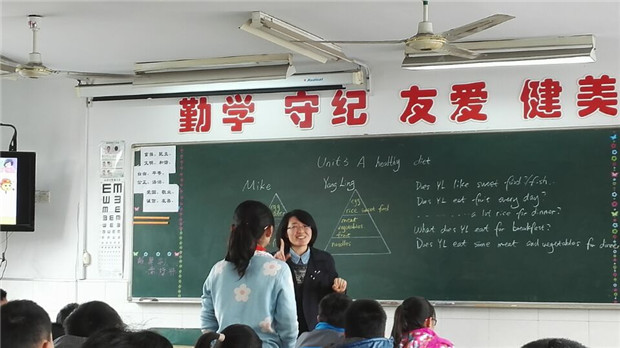 勤学 守纪 友爱 健美
富强、民主、
文明、和谐、
自由、平等、
公正、法治、
爱国、敬业、
诚信、友善
Unit5 A healthy diet
Mike
Yang Ling
egg
rice sweet food
meat
vegetables
fruit
noodles
Does YL like sweet food?/fish...
Does YL eat fruit every day?
......... a lot rice for dinner?
What does YL eat for breakfast?
Does YL eat some meat and vegetables for dinner